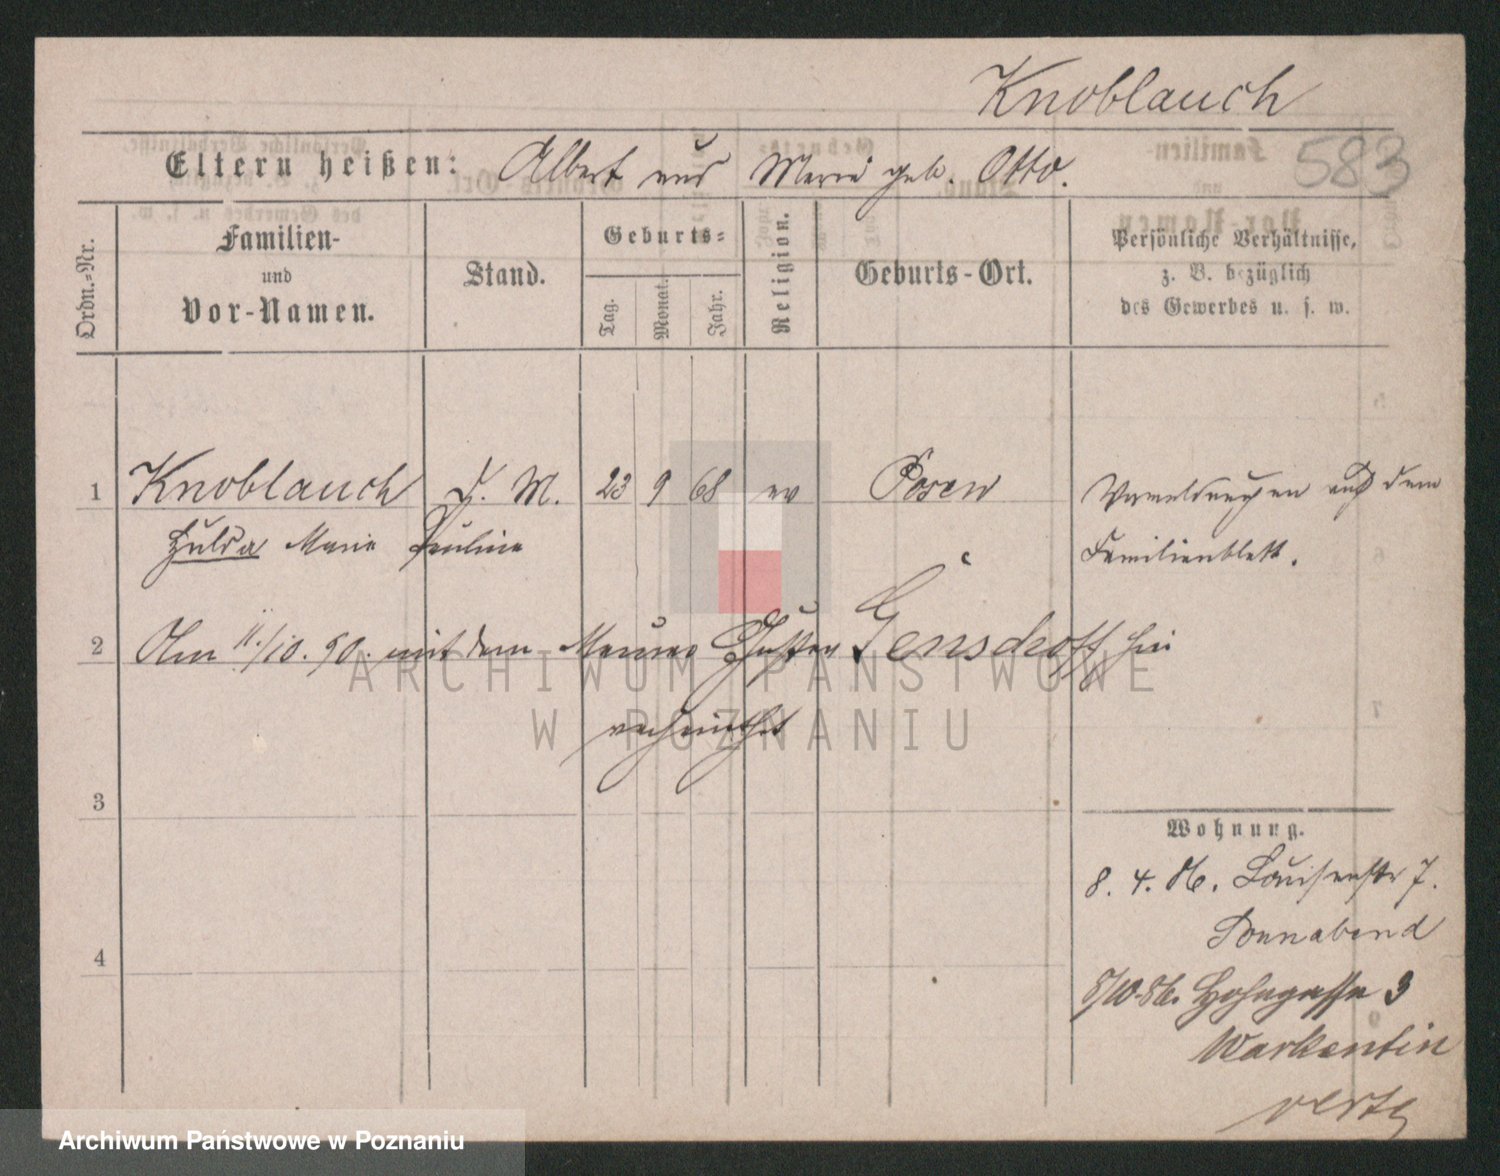 Knoblauch
583
Eltern heißen: Albert und Marie geb. Otto.
Ordn.-Nr.
Familien-
und
Vor-Namen.
Stand.
Geburts-
Tag.
Monat.
Jahr.
Religion.
Geburts-Ort.
Persönliche Verhältnisse,
z. B. bezüglich
des Gewerbes u. s. w.
1 Knoblauch D. M. 23 9 68 ev Posen
Hulda Marie Pauline
Anmeldungen auf dem
Familienblatt.
2 Am 11./10. 90. mit dem Maurer Gustav Gensdroff hier
verheirathet
3
4
Wohnung.
8. 4. 86. Louisenstr 7.
Sonnabend
8/10.86. Hohegasse 3
Warkentin
verte
ARCHIWUM PAŃSTWOWE
W POZNANIU
Archiwum Państwowe w Poznaniu